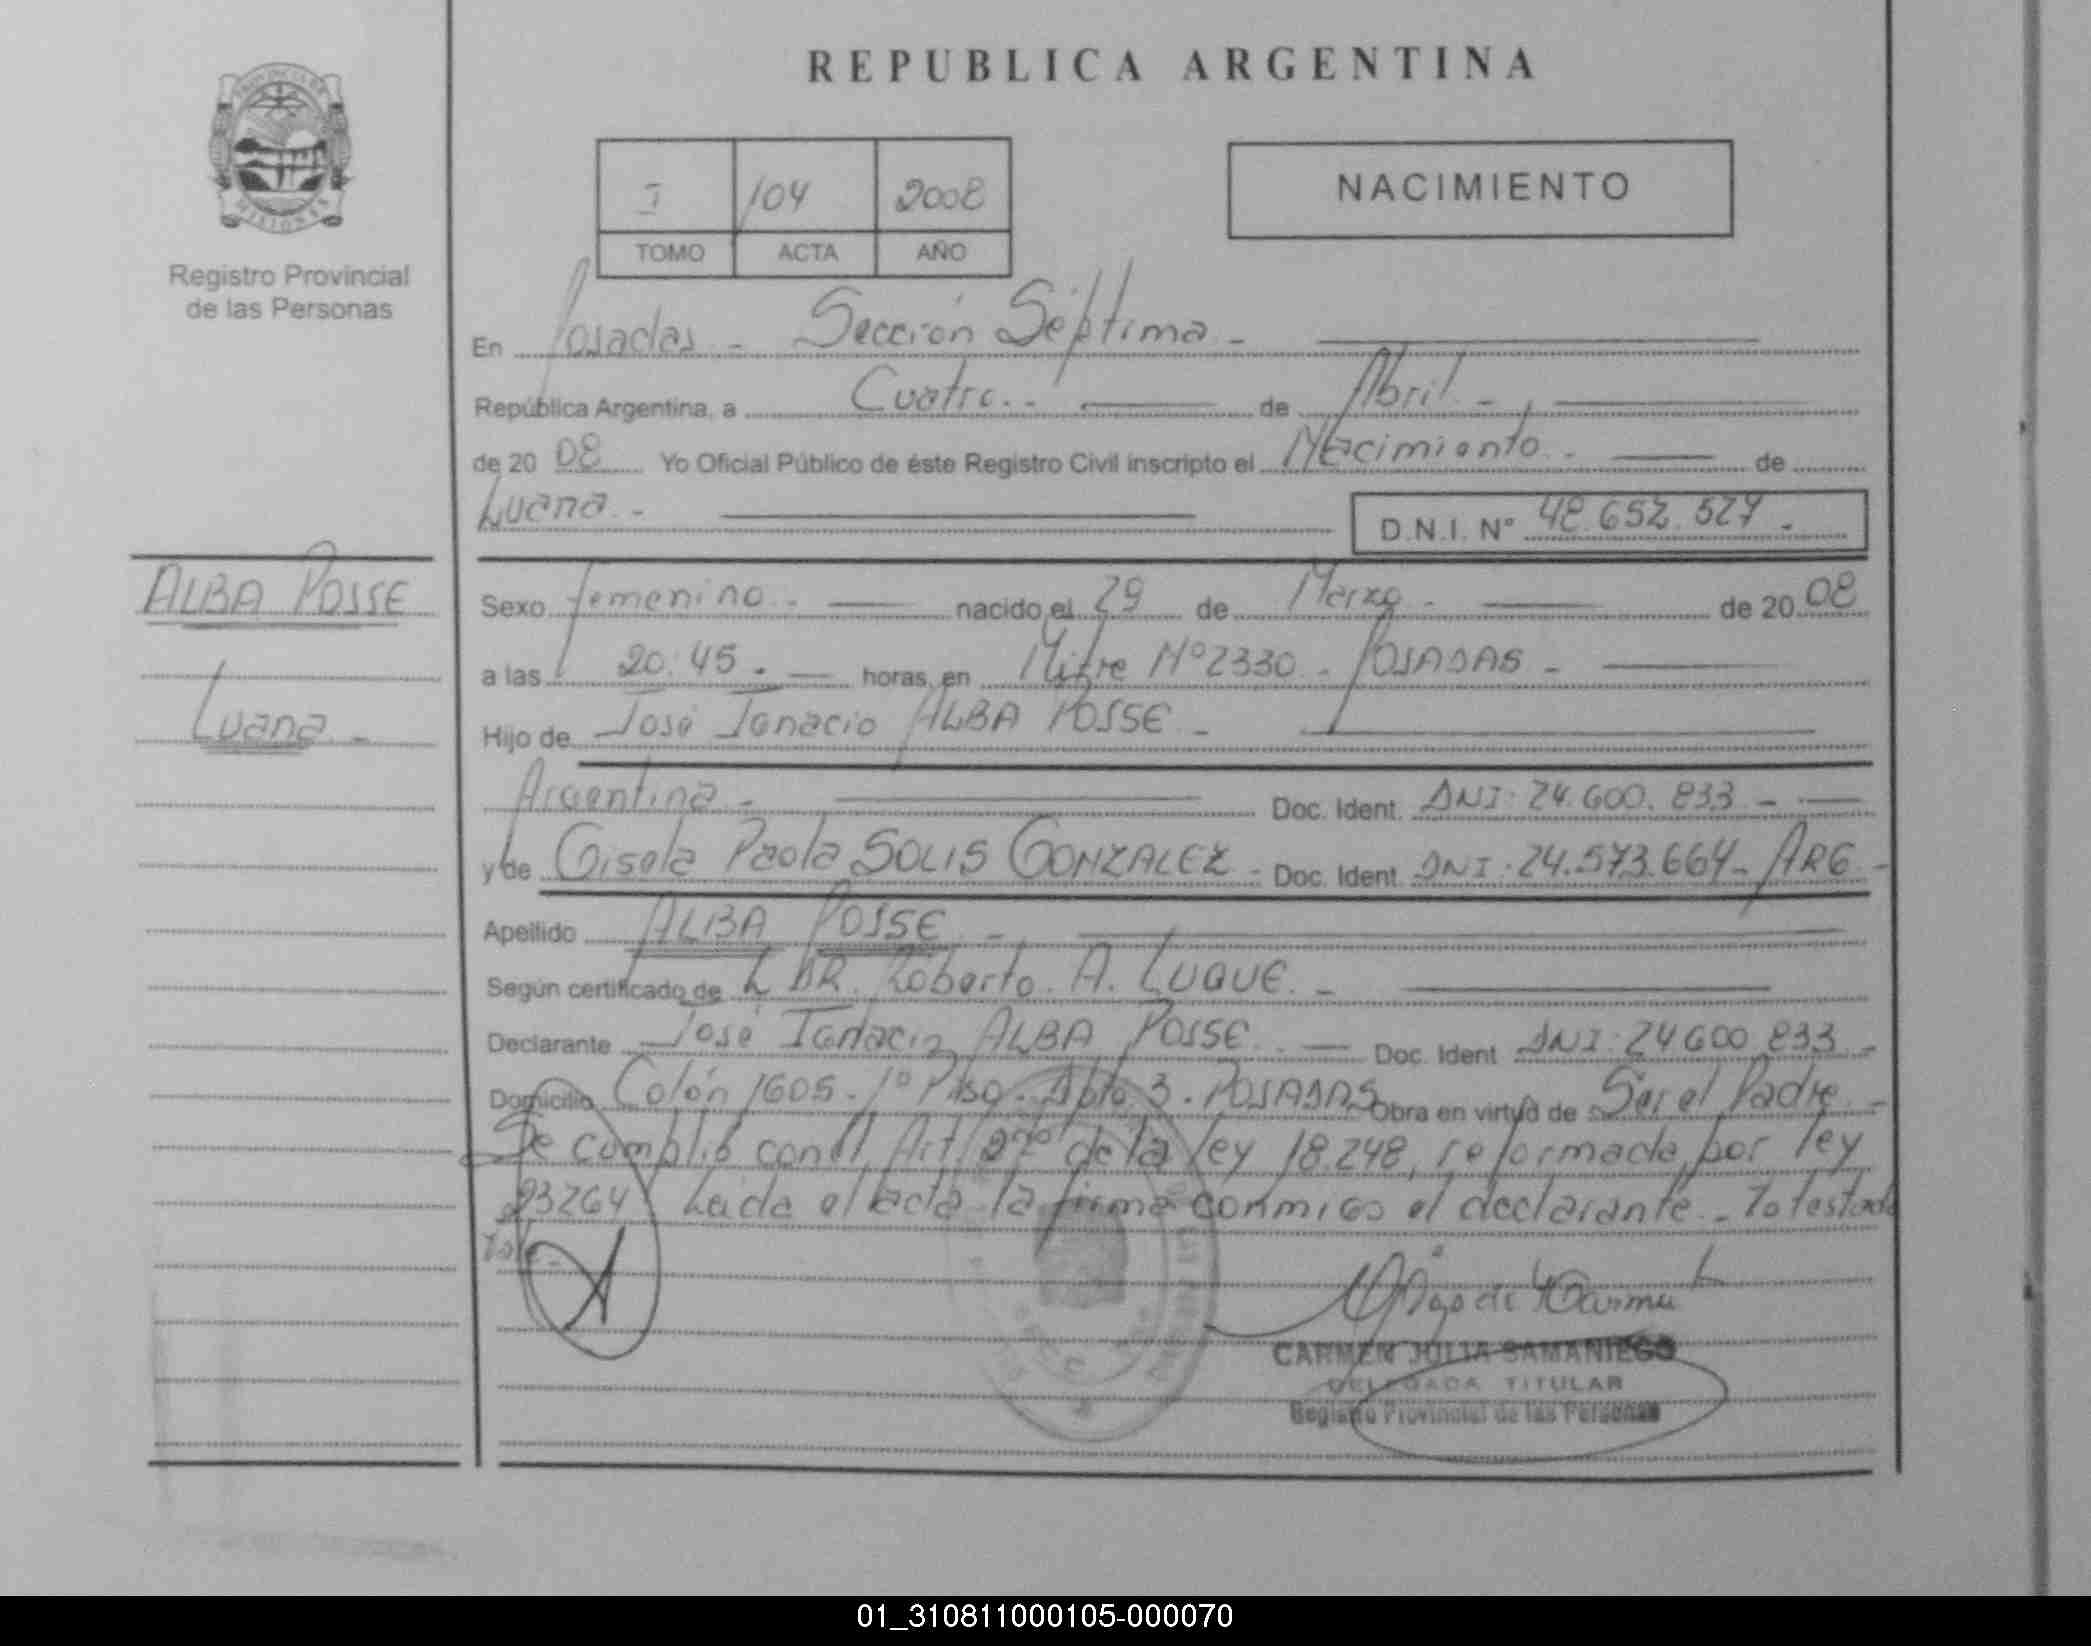 REPUBLICA ARGENTINA
PROVINCIA DE
MISIONES
Registro Provincial
de las Personas
I 104 2008
TOMO ACTA AÑO
NACIMIENTO
En Posadas - Sección Séptima -
República Argentina, a Cuatro.- de Abril -
de 20 08 Yo Oficial Público de éste Registro Civil inscripto el Nacimiento.- de
Luana.-
D.N.I. N° 48.652.527.-
ALBA POSSE
Luana.-
Sexo femenino.- nacido el 29 de Marzo.- de 20 08
a las 20:45.- horas, en Mitre N°2330.- POSADAS -
Hijo de José Ignacio ALBA POSSE.-
Argentina.- Doc. Ident. DNI: 24.600.833 -
y de Gisela Paola SOLIS GONZALEZ.- Doc. Ident. DNI: 24.573.664- ARG.-
Apellido ALBA POSSE -
Según certificado de DR. Roberto A. LUQUE.-
Declarante José Ignacio ALBA POSSE.- Doc. Ident DNI: 24600.833.-
Domicilio Colón 1605.-1° Piso. Dpto 3. POSADAS Obra en virtud de Ser el Padre.-
Se cumplió con el Art. 2do de la ley 18.248, reformada por ley
23264 Leida el acta la firma conmigo el declarante.- To testado
CARMEN JULIA SAMANIEGO
DELEGADA TITULAR
Registro Provincial de las Personas
01_310811000105-000070